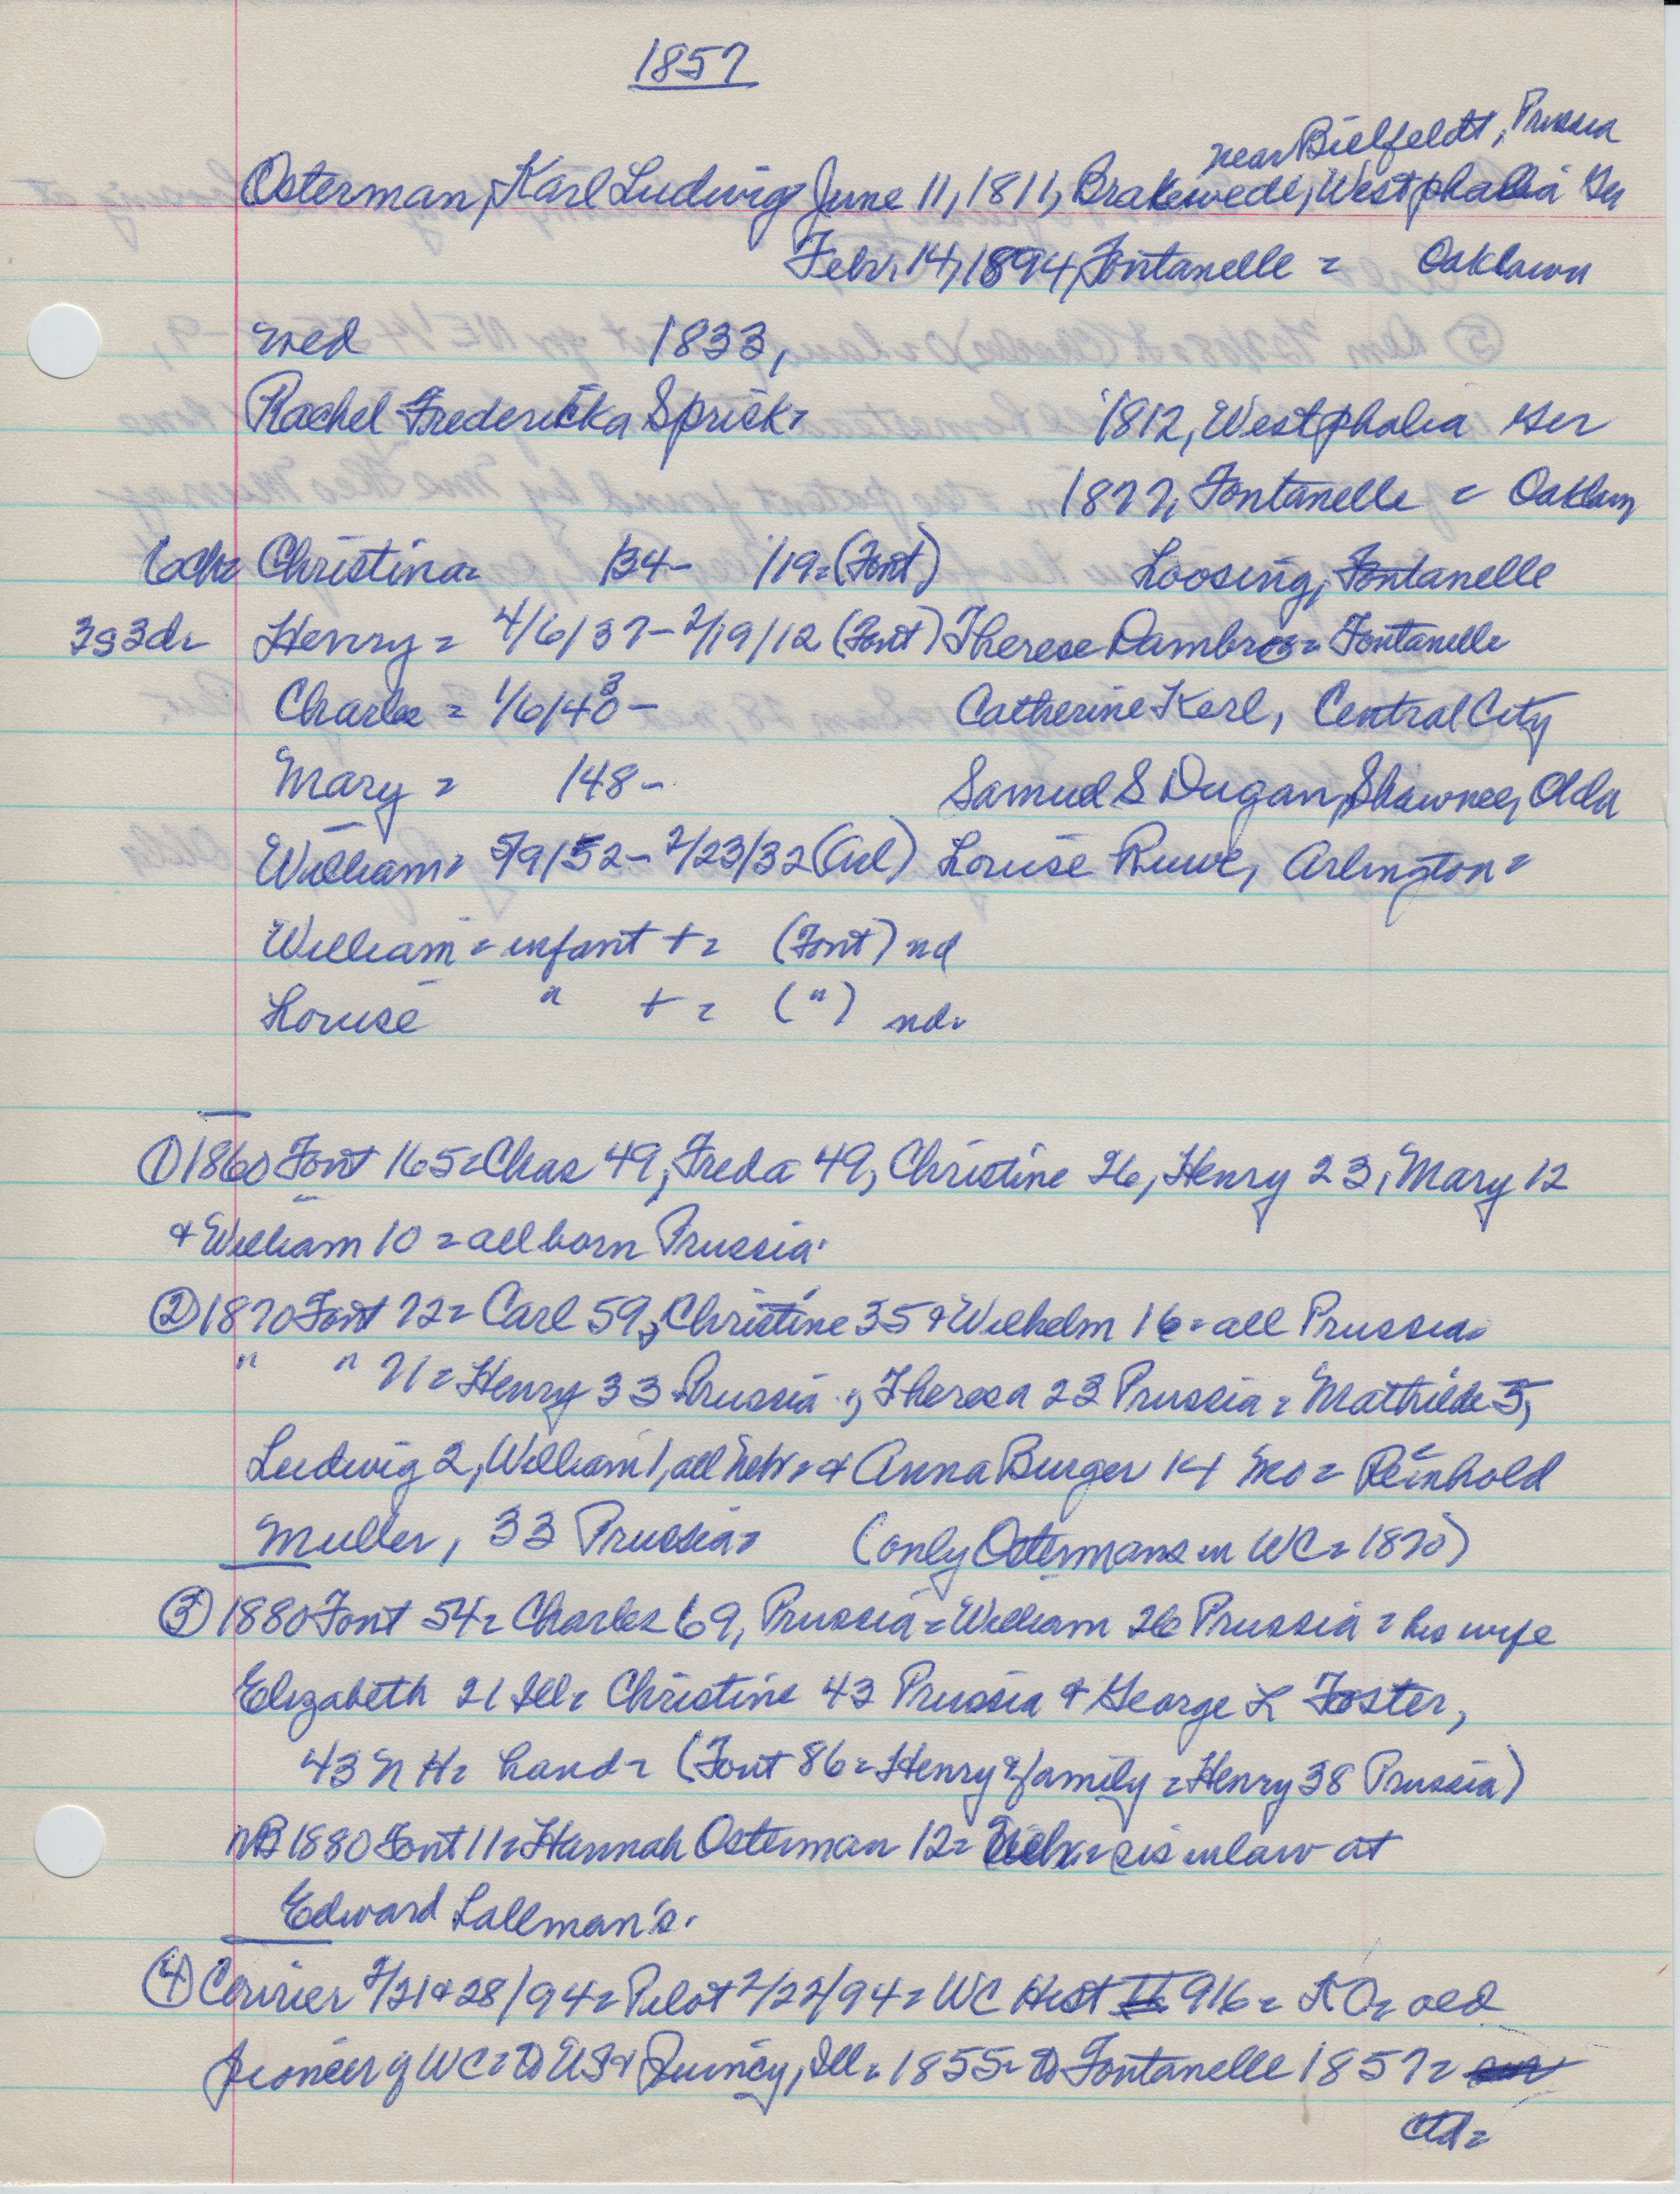 1857
near Bielfeldt, Prussia
Osterman, Karl Ludwig June 11, 1811, Brakewede, Westphalia Ger
Febr. 14, 1894, Fontanelle = Oaklawn
wed 1833,
Rachel Fredericka Sprick= 1812, Westphalia Ger
1877, Fontanelle = Oaklawn
6ch= Christina= /34- /19=(Font) Loosing, Fontanelle
3s3d= Henry = 4/6/37-2/19/12 (Font) Therese Dambroe= Fontanelle
Charles = 1/6/43- Catherine Karl, Central City
Mary = /48- Samuel S Dugan, Shawnee, Okla
William= 5/9/52-2/23/32(Arl) Louise Ruwe, Arlington=
William = infant += (Font) nd
Louise " += (") nd.
① 1860 Font 165=Chas 49, Freda 49, Christine 26, Henry 23, Mary 12
& William 10 = all born Prussia.
② 1870 Font 72= Carl 59, Christine 35 & Wilhelm 16=all Prussia=
" " 71= Henry 33 Prussia, Theresa 23 Prussia= Mathilde 5,
Ludwig 2, William 1, all Nebr= & Anna Burger 14 Mo= Reinhold
Muller, 33 Prussia= (only Ostermans in WC= 1870)
③ 1880 Font 54= Charles 69, Prussia=William 26 Prussia= his wife
Elizabeth 21 Ill= Christine 43 Prussia & George L Foster,
43 NH= hand= (Font 86=Henry & family=Henry 38 Prussia)
NB 1880 Font 11=Hannah Osterman 12= = sis in law at
Edward Lallman's.
④ Courier 2/21&28/94= Pilot 2/22/94= WC Hist II 916= KO= old
pioneer of WC= to US & Quincy, Ill. 1855= to Fontanelle 1857=
ctd=